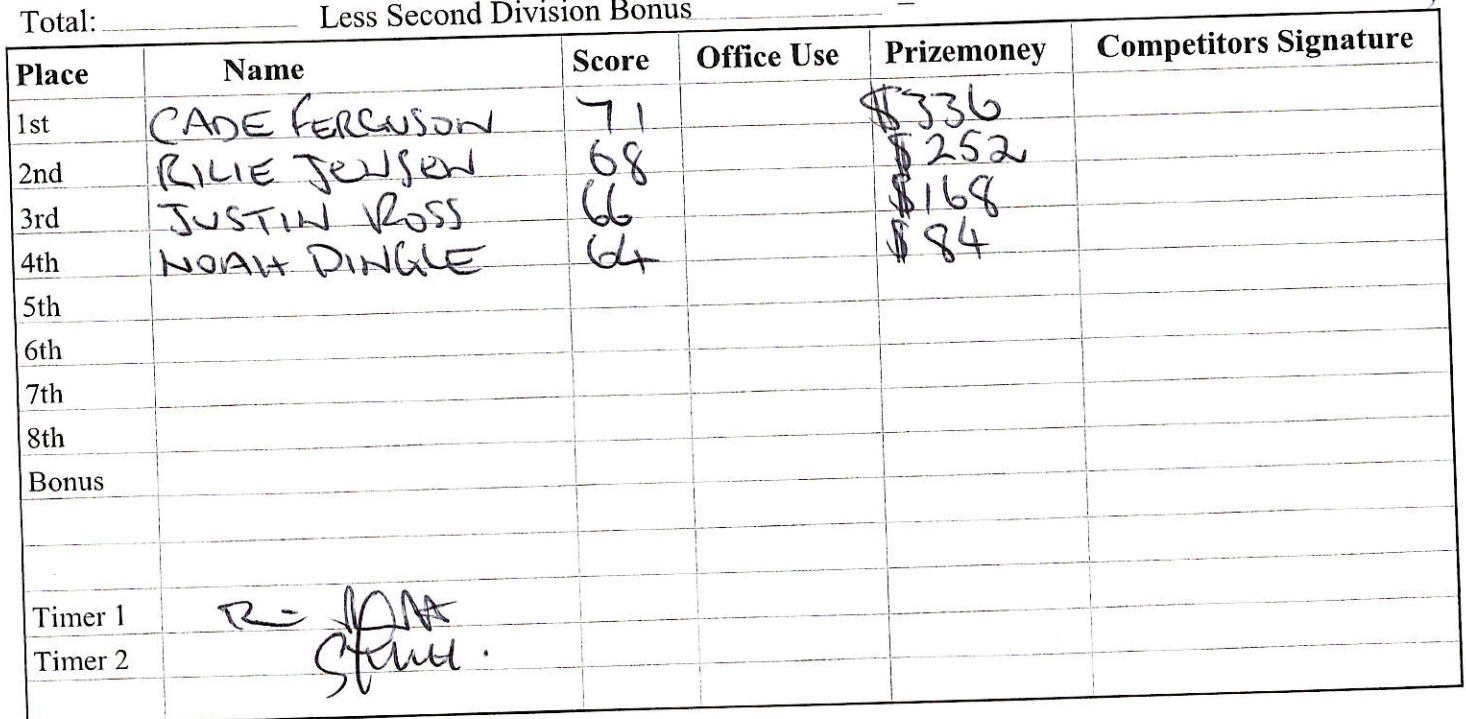 Total: Less Second Division Bonus
Place Name Score Office Use Prizemoney Competitors Signature
1st CADE FERGUSON 71 $336
2nd RILIE JENSEN 68 $252
3rd JUSTIN ROSS 66 $168
4th NOAH DINGLE 64 $84
5th
6th
7th
8th
Bonus
Timer 1
Timer 2